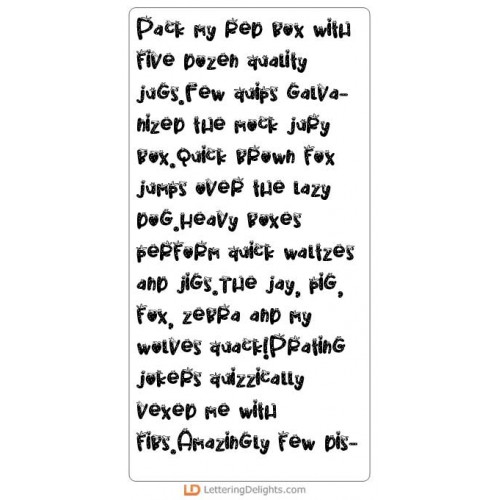 Pack my red box with
five dozen quality
jugs.Few quips galva-
nized the mock jury
box.Quick brown fox
jumps over the lazy
dog.Heavy boxes
perform quick waltzes
and jigs.The jay, pig,
fox, zebra and my
wolves quack!Prating
jokers quizzically
vexed me with
fibs.Amazingly few dis-
LD LetteringDelights.com